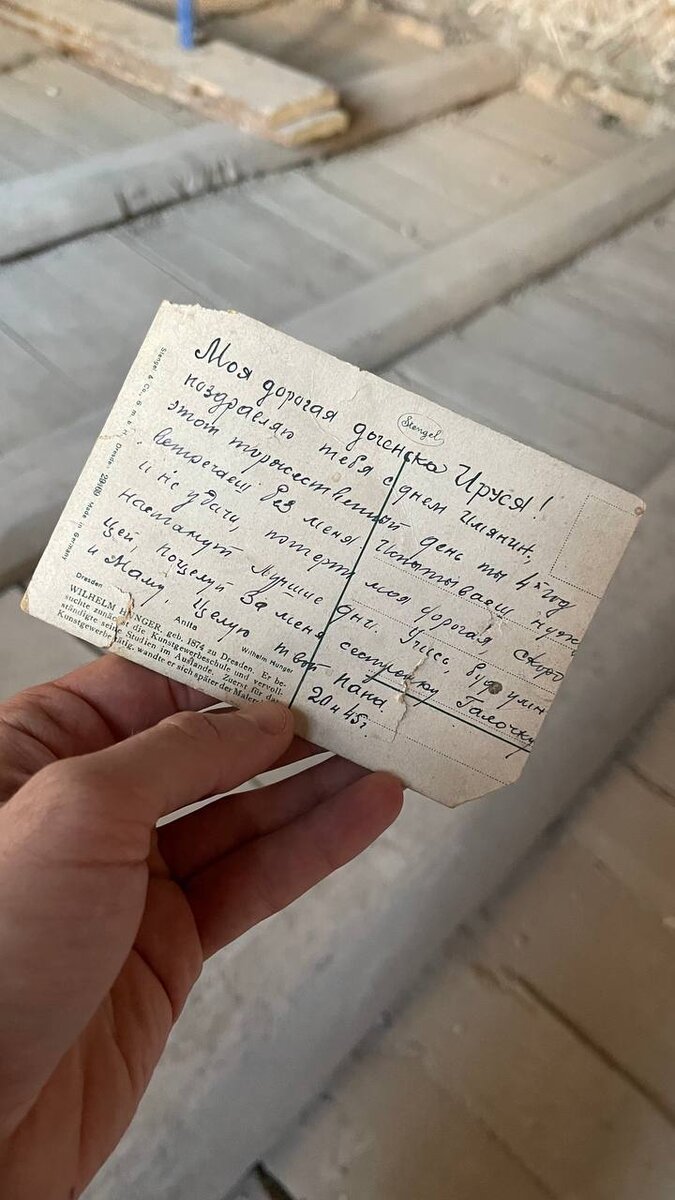 Моя дорогая дыгенска Ируся!
поздравляю тебя с днем Имянин,
этот торжественный день ты 4й год
встречаеш без меня Испытываеш нужд
и не удачи, потерпи моя дорогая, скоро
настанут лучшие дни. Учись, будь умн
цей, поцелуй за меня сестронку Галочку
и Маму Целую твой папа.
20 45г.
Stengel
Stengel & Co., G. m. b. H., Dresden 29 Made in Germany
Dresden Anita Wilhelm Hunger
WILHELM HUNGER, geb. 1874 zu Dresden. Er be-
suchte zunächst die Kunstgewerbeschule und vervoll-
ständigte seine Studien im Auslande. Zuerst für das
Kunstgewerbe tätig, wandte er sich später der Malerei